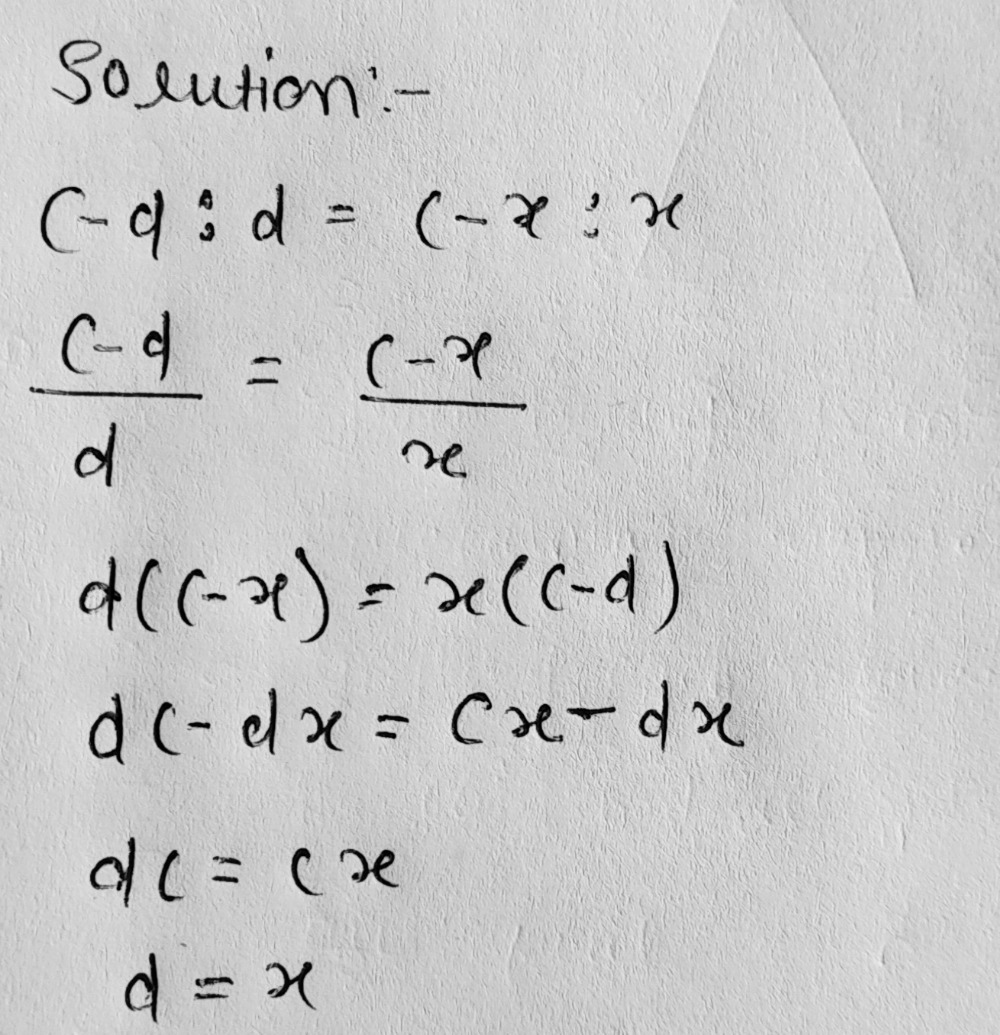 Solution:-
C-d : d = C-x : x
C-d = C-x
d x
d(C-x) = x(C-d)
dC-dx = Cx-dx
dC = Cx
d = x